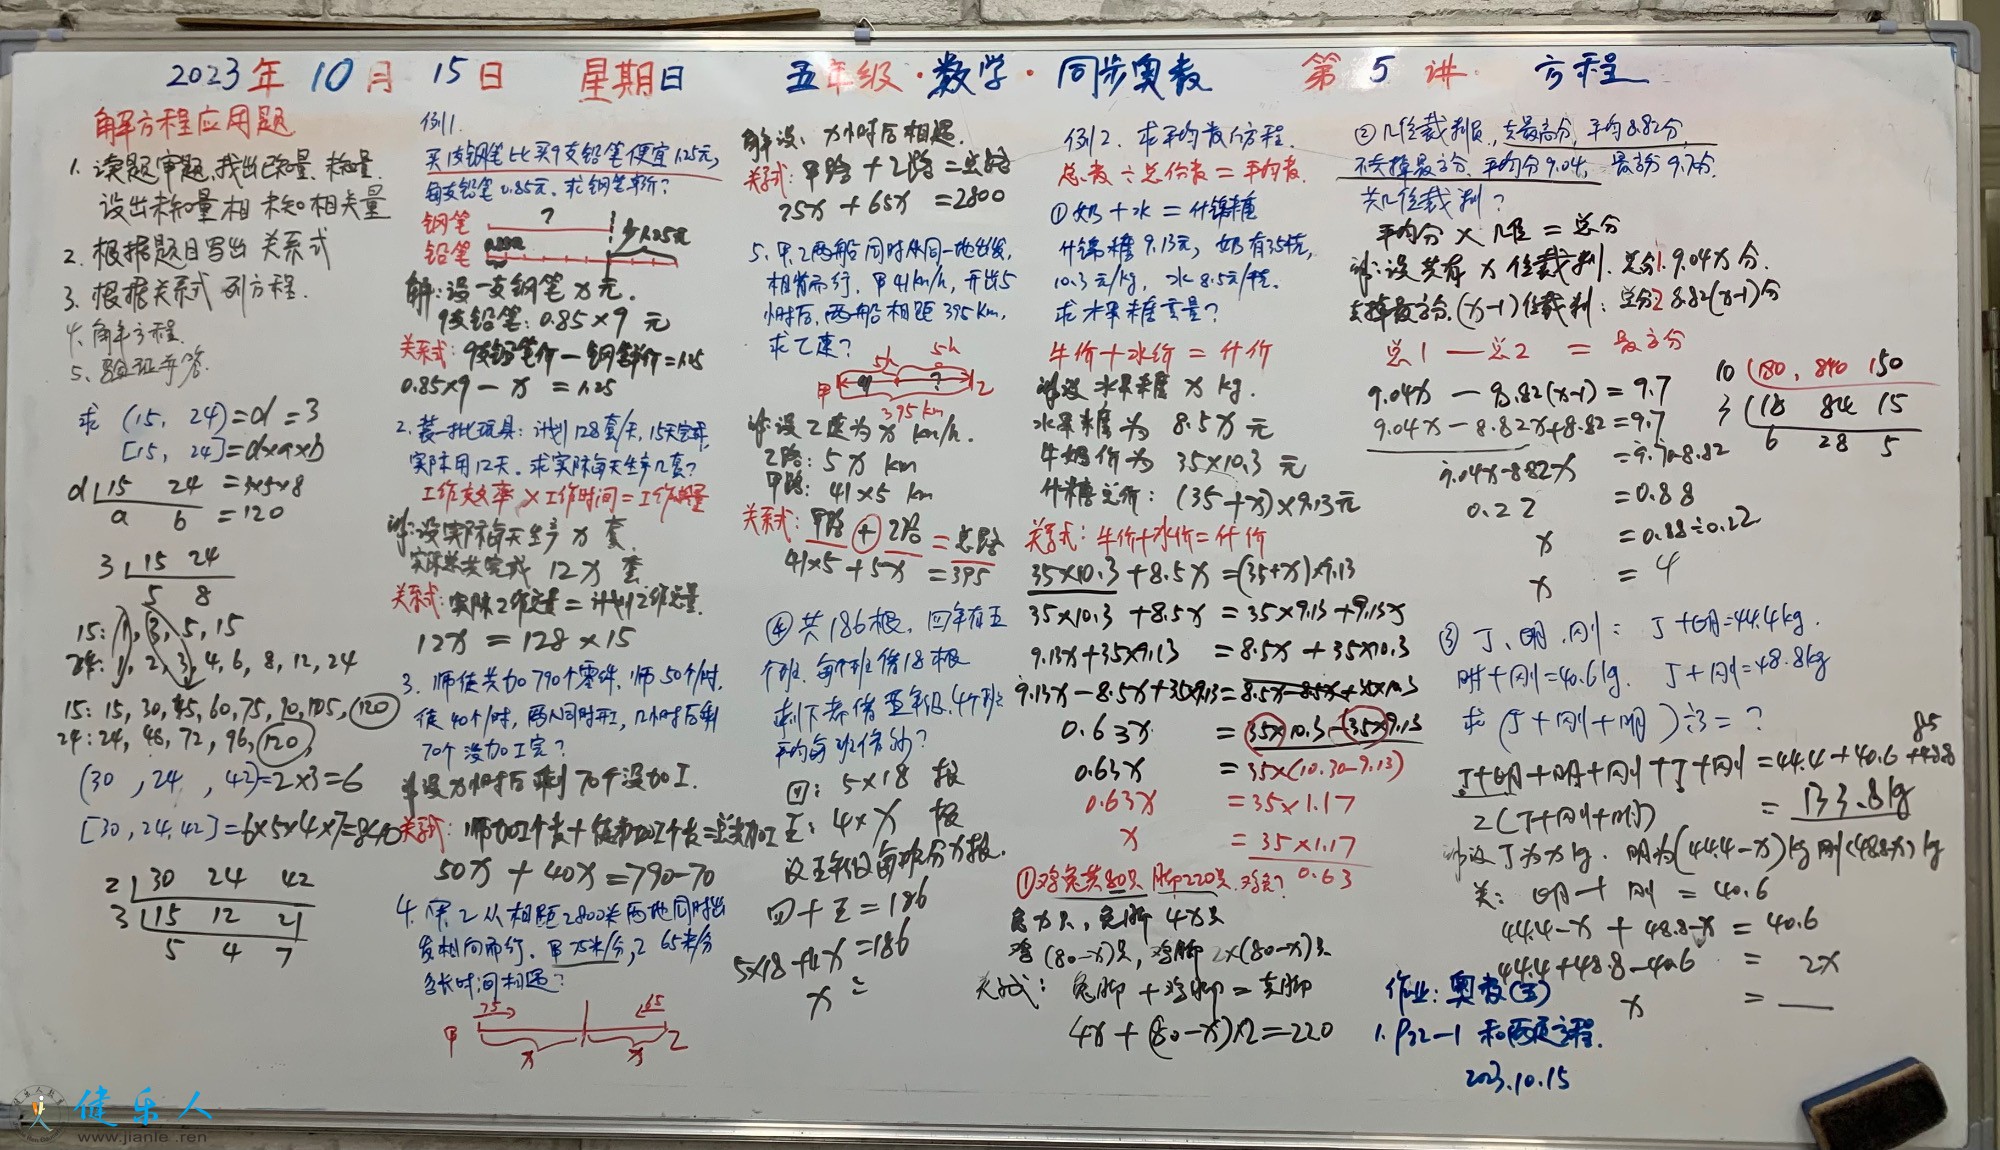 2023年 10月 15日 星期日 五年级·数学·同步奥数 第 5 讲 方程
解方程应用题
1. 读题审题,找出已知量,未知量.
设出未知量相 未知相关量
2. 根据题目写出 关系式
3. 根据关系式 列方程.
4. 解方程.
5.
求 (15, 24)=d=3
[15, 24]=d×a×b
d 15 24 =3×5×8
a b =120
3 15 24
5 8
15: 1, 3, 5, 15
24: 1, 2, 3, 4, 6, 8, 12, 24
15: 15, 30, 45, 60, 75, 90, 105, 120
24: 24, 48, 72, 96, 120,
(30, 24, 42)=2×3=6
[30, 24, 42]=6×5×4×7=840
2 30 24 42
3 15 12 21
5 4 7
例1.
买1支钢笔比买9支铅笔便宜1.25元,
每支铅笔0.85元. 求钢笔单价?
钢笔 ?
铅笔 少1.25元
解:设一支钢笔x元.
9支铅笔: 0.85×9 元
关系式: 9支铅笔价一钢笔单价=1.25
0.85×9 - x = 1.25
2. 装一批玩具: 计划128套/天, 15天完成,
实际用12天. 求实际每天生产几套?
工作效率×工作时间=工作总量
设实际每天生产x套.
实际总共完成 12x 套
关系式: 实际工作总量=计划工作总量.
12x = 128×15
3. 师徒共加790个零件. 师50个/时,
徒40个/时, 两人同时开工, 几小时后剩
70个没加工完?
设x小时后剩70个没加工.
关系式: 师加工个数+徒加工个数=总共加工
50x + 40x = 790-70
4. 甲.乙从相距2800米两地同时出
发相向而行. 甲75米/分, 乙65米/分
多长时间相遇?
75 65
甲 x x 乙
解设: x小时后相遇.
关系式: 甲路+乙路=总路
75x + 65x = 2800
5. 甲.乙两船同时从同一地出发,
相背而行. 甲41km/h, 开出5
小时后, 两船相距395km,
求乙速?
5h 5h
甲 41 ? 乙
395km
设乙速为x km/h.
乙路: 5x km
甲路: 41×5 km
关系式: 甲路+乙路=总路
41×5+5x=395
④共186根. 四年有五
个班. 每个班借18根
剩下都借五年级.4个班
平均每班借
四: 5×18 根
五: 4×x 根
设五年级每班分x根.
四+五=186
5×18+4x=186
x =
例2. 求平均数的方程.
总数÷总份数=平均数.
①奶+水=什锦糖
什锦糖9.13元, 奶有35千克,
10.3元/kg, 水8.5元/千克.
求水果糖重量?
牛价+水价=什价
设水果糖x kg.
水果糖为 8.5x 元
牛奶价为 35×10.3 元
什糖总价: (35+x)×9.13元
关系式: 牛价+水价=什价
35×10.3+8.5x=(35+x)×9.13
35×10.3+8.5x=35×9.13+9.13x
9.13x+35×9.13=8.5x+35×10.3
9.13x-8.5x+35×9.13=8.5x-8.5x+35×10.3
0.63x = 35×10.3-35×9.13
0.63x = 35×(10.30-9.13)
0.63x = 35×1.17
x = 35×1.17
0.63
①鸡兔共80只 脚220只.鸡兔?
兔x只, 兔脚 4x只
鸡(80-x)只, 鸡脚2×(80-x)只
关系式: 兔脚+鸡脚=共脚
4x+(80-x)×2=220
②几位裁判员, 去最高分, 平均8.82分,
不去掉最高分. 平均分9.04, 最高分9.7分.
共几位裁判?
平均分×几位=总分
设共有x位裁判. 总分1. 9.04x分.
去掉最高分.(x-1)位裁判: 总分2 8.82(x-1)分
总1—总2 = 最高分
9.04x - 8.82(x-1)=9.7
9.04x-8.82x+8.82=9.7
9.04x-8.82x =9.7-8.82
0.22 =0.88
x =0.88÷0.22
x = 4
10 180, 840 150
3 18 84 15
6 28 5
③ 丁、明.刚: 丁+明=44.4kg.
明+刚=40.6kg. 丁+刚=48.8kg
求(丁+刚+明)÷3=?
85
丁+明+明+刚+丁+刚=44.4+40.6+48.8
2(丁+刚+明) = 133.8kg
设丁为xkg. 明为(44.4-x)kg 刚(48.8-x)kg
关: 明+刚=40.6
44.4-x+48.8-x=40.6
44.4+48.8-40.6 = 2x
x =
作业: 奥数(五)
1. P32-1 和两页方程.
2023.10.15
健乐人
www.jianle.ren